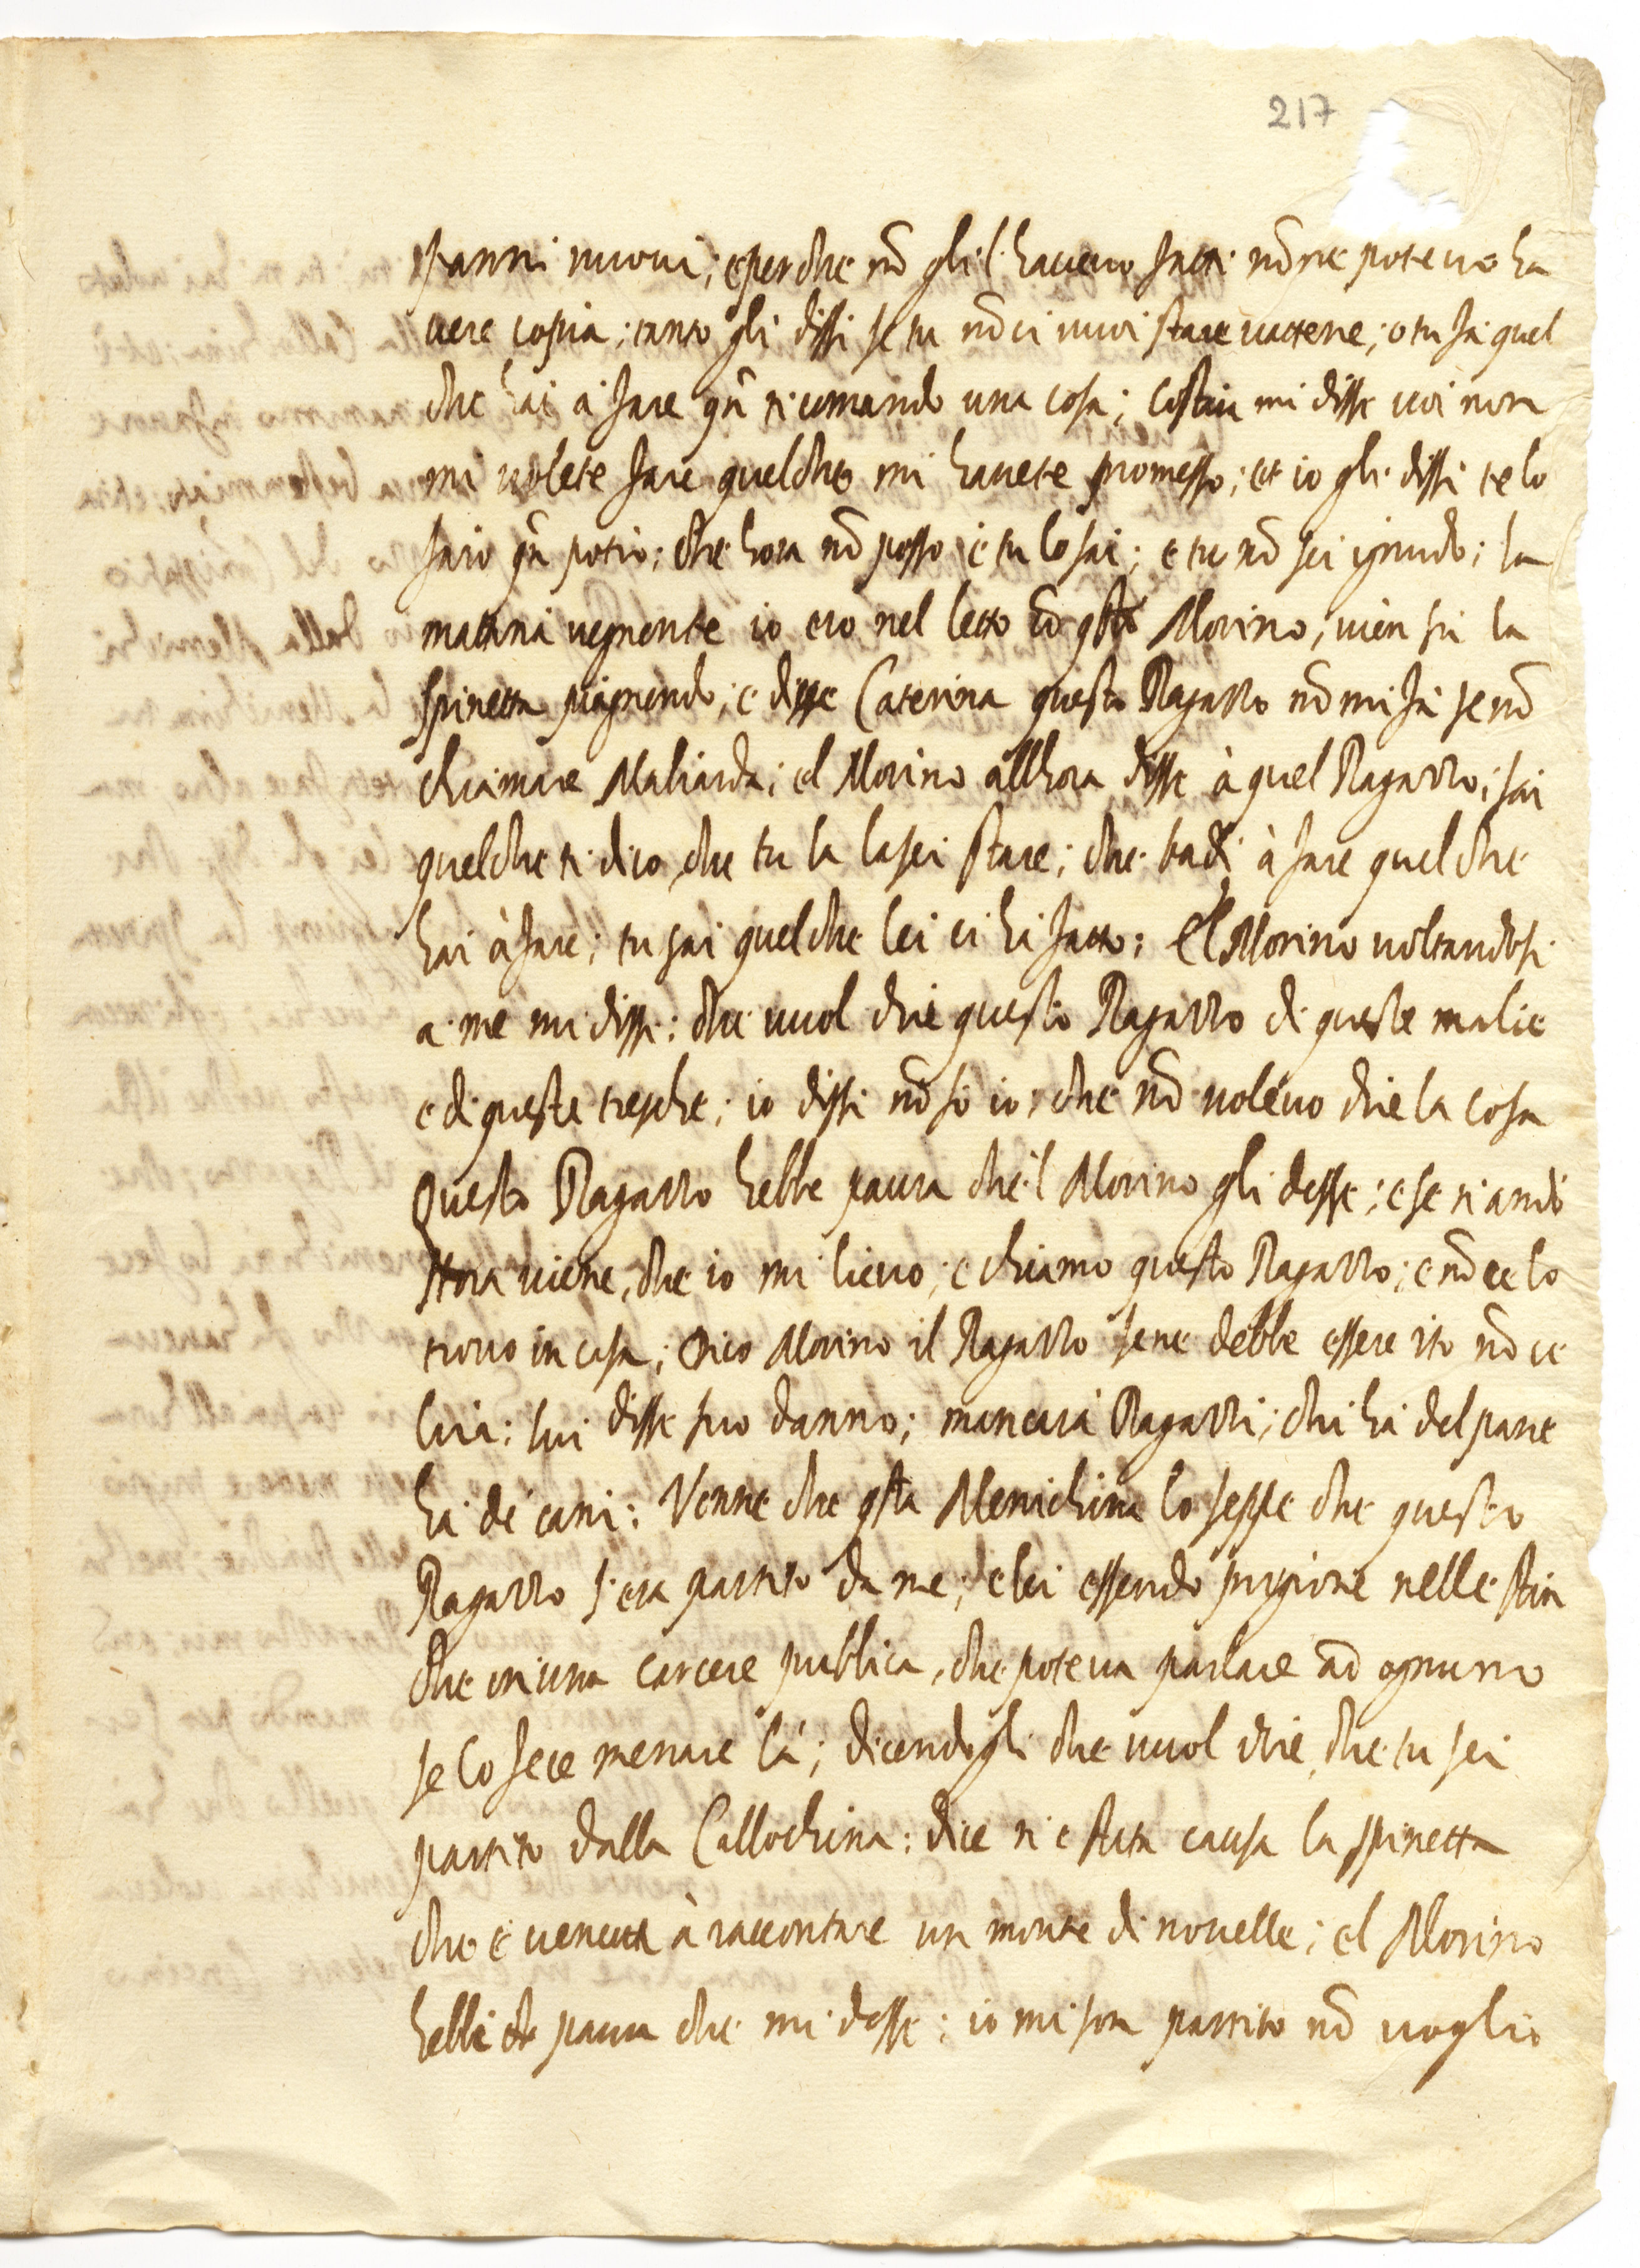 217
panni nuovi; e perche nō gli l'havevo fatti nō ne potevo ha
vere copia; tanto gli dissi se tu nō ci vuoi stare vattene; o tu fa quel
che hai à fare qñ ti comando una cosa; Costui mi disse voi non
mi volete fare quelche mi havete promesso; et io gli dissi te lo
farò qñ potrò; che hora nō posso e tu lo sai; e tu nō sei ignudo; la
mattina vegnente io ero nel letto cō qsto Morino, vien sù la
spinetta piagnendo; e disse Caterina questo Ragazzo nō mi fà se nō
chiamare Maliarda; el Morino allhora disse à quel Ragazzo; sai
quelche ti dico che tu la lasci stare; che badi à fare quel che
hai à fare; tu sai quelche lei ci hà fatto; El Morino voltandosi
a me mi disse: che vuol dire questo Ragazzo di queste malie
e di queste tresche; io dissi nō sò io, che nō volevo dire la cosa
Questo Ragazzo hebbe paura che'l Morino gli desse; e se n'andò
Hora viene, che io mi lievo; e chiamo questo Ragazzo; e nō ce lo
trovo in casa; Dico Morino il Ragazzo sene debbe essere ito nō ce
lui: lui disse suo danno; mancarà Ragazzi; chi hà del pane
hà de cani: Venne che qsta Menichina lo seppe che questo
Ragazzo s'era partito da me; e lei essendo prigione nelle stin
che in una carcere publica, che poteva parlare cō ognuno
se lo fece menare là; dicendogli che vuol dire che tu sei
partito dalla Callochina: dice n'è stata causa la spinetta
che è venuta à raccontare un monte di novelle; el Morino
hebbi paura che mi desse; io mi son partito nō voglio